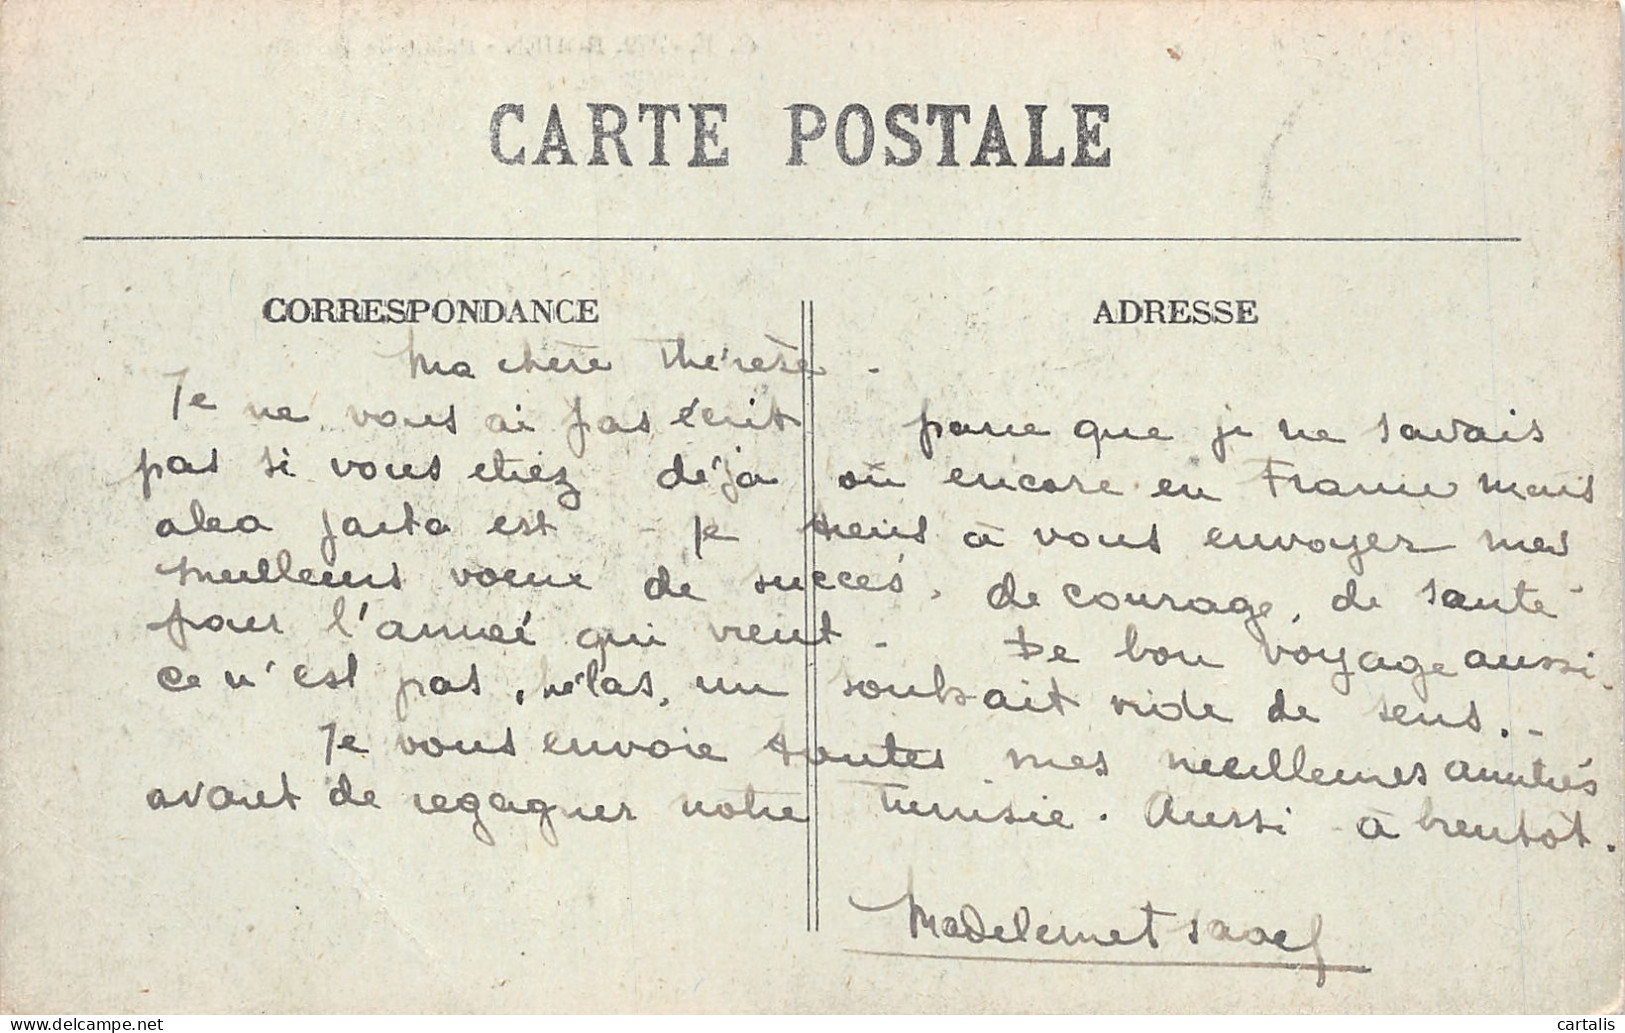 CARTE POSTALE
CORRESPONDANCE
ADRESSE
Ma chère Thérèse.
Je ne vous ai pas écrit parce que je ne savais
pas si vous étiez déjà ou encore en France mais
alea jacta est - je tiens à vous envoyer mes
meilleurs voeux de succès, de courage, de santé
pour l'année qui vient. De bon voyage aussi.
Ce n'est pas, hélas, un souhait vide de sens..
Je vous envoie toutes mes meilleures amitiés
avant de regagner notre Tunisie. Aussi à bientôt.
cartalis